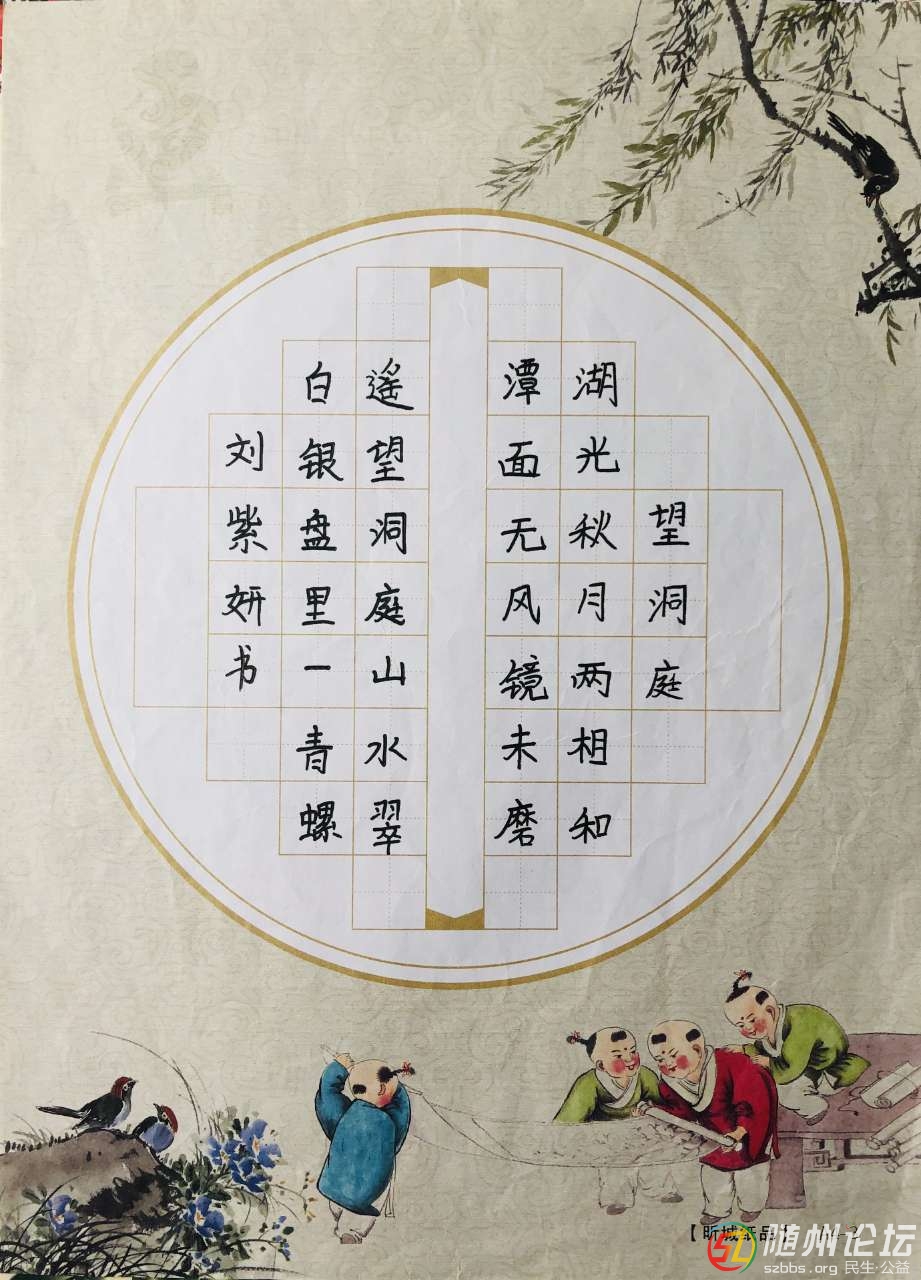 望洞庭
湖光秋月两相和
潭面无风镜未磨
遥望洞庭山水翠
白银盘里一青螺
刘紫妍书
【昕城纸品】
随州论坛
szbbs.org 民生·公益